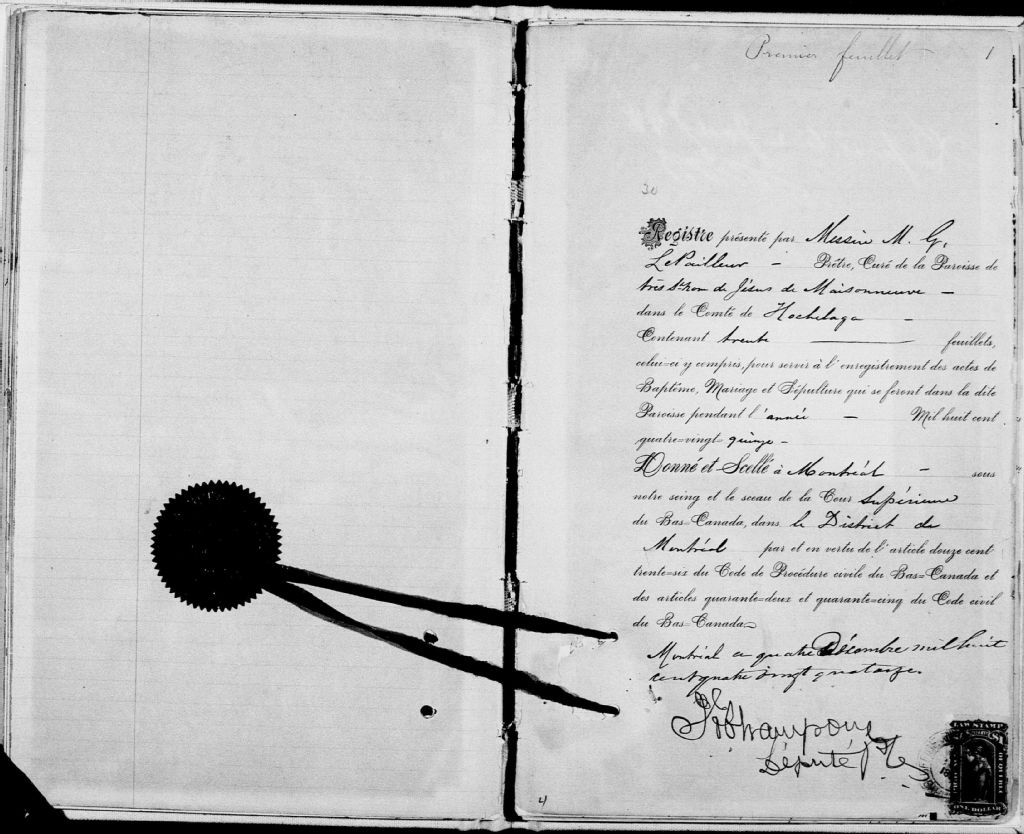 Premier feuillet — 1
30
Registre présenté par Messire M. G.
LePailleur — Prêtre, Curé de la Paroisse de
très St Nom de Jésus de Maisonneuve —
dans le Comté de Hochelaga —
Contenant trente — feuillets,
celui-ci y compris, pour servir à l'enregistrement des actes de
Baptême, Mariage et Sépulture qui se feront dans la dite
Paroisse pendant l'année — Mil huit cent
quatre=vingt quinze —
Donné et Scellé à Montréal — sous
notre seing et le sceau de la Cour Supérieure
du Bas=Canada, dans le District de
Montréal par et en vertu de l'article douze cent
trente=six du Code de Procédure civile du Bas=Canada et
des articles quarante=deux et quarante=cinq du Code civil
du Bas=Canada
Montréal ce quatre Décembre mil huit
cent quatre vingt quatorze.
Député P
LAW STAMP
$1
QUEBEC
ONE DOLLAR
4